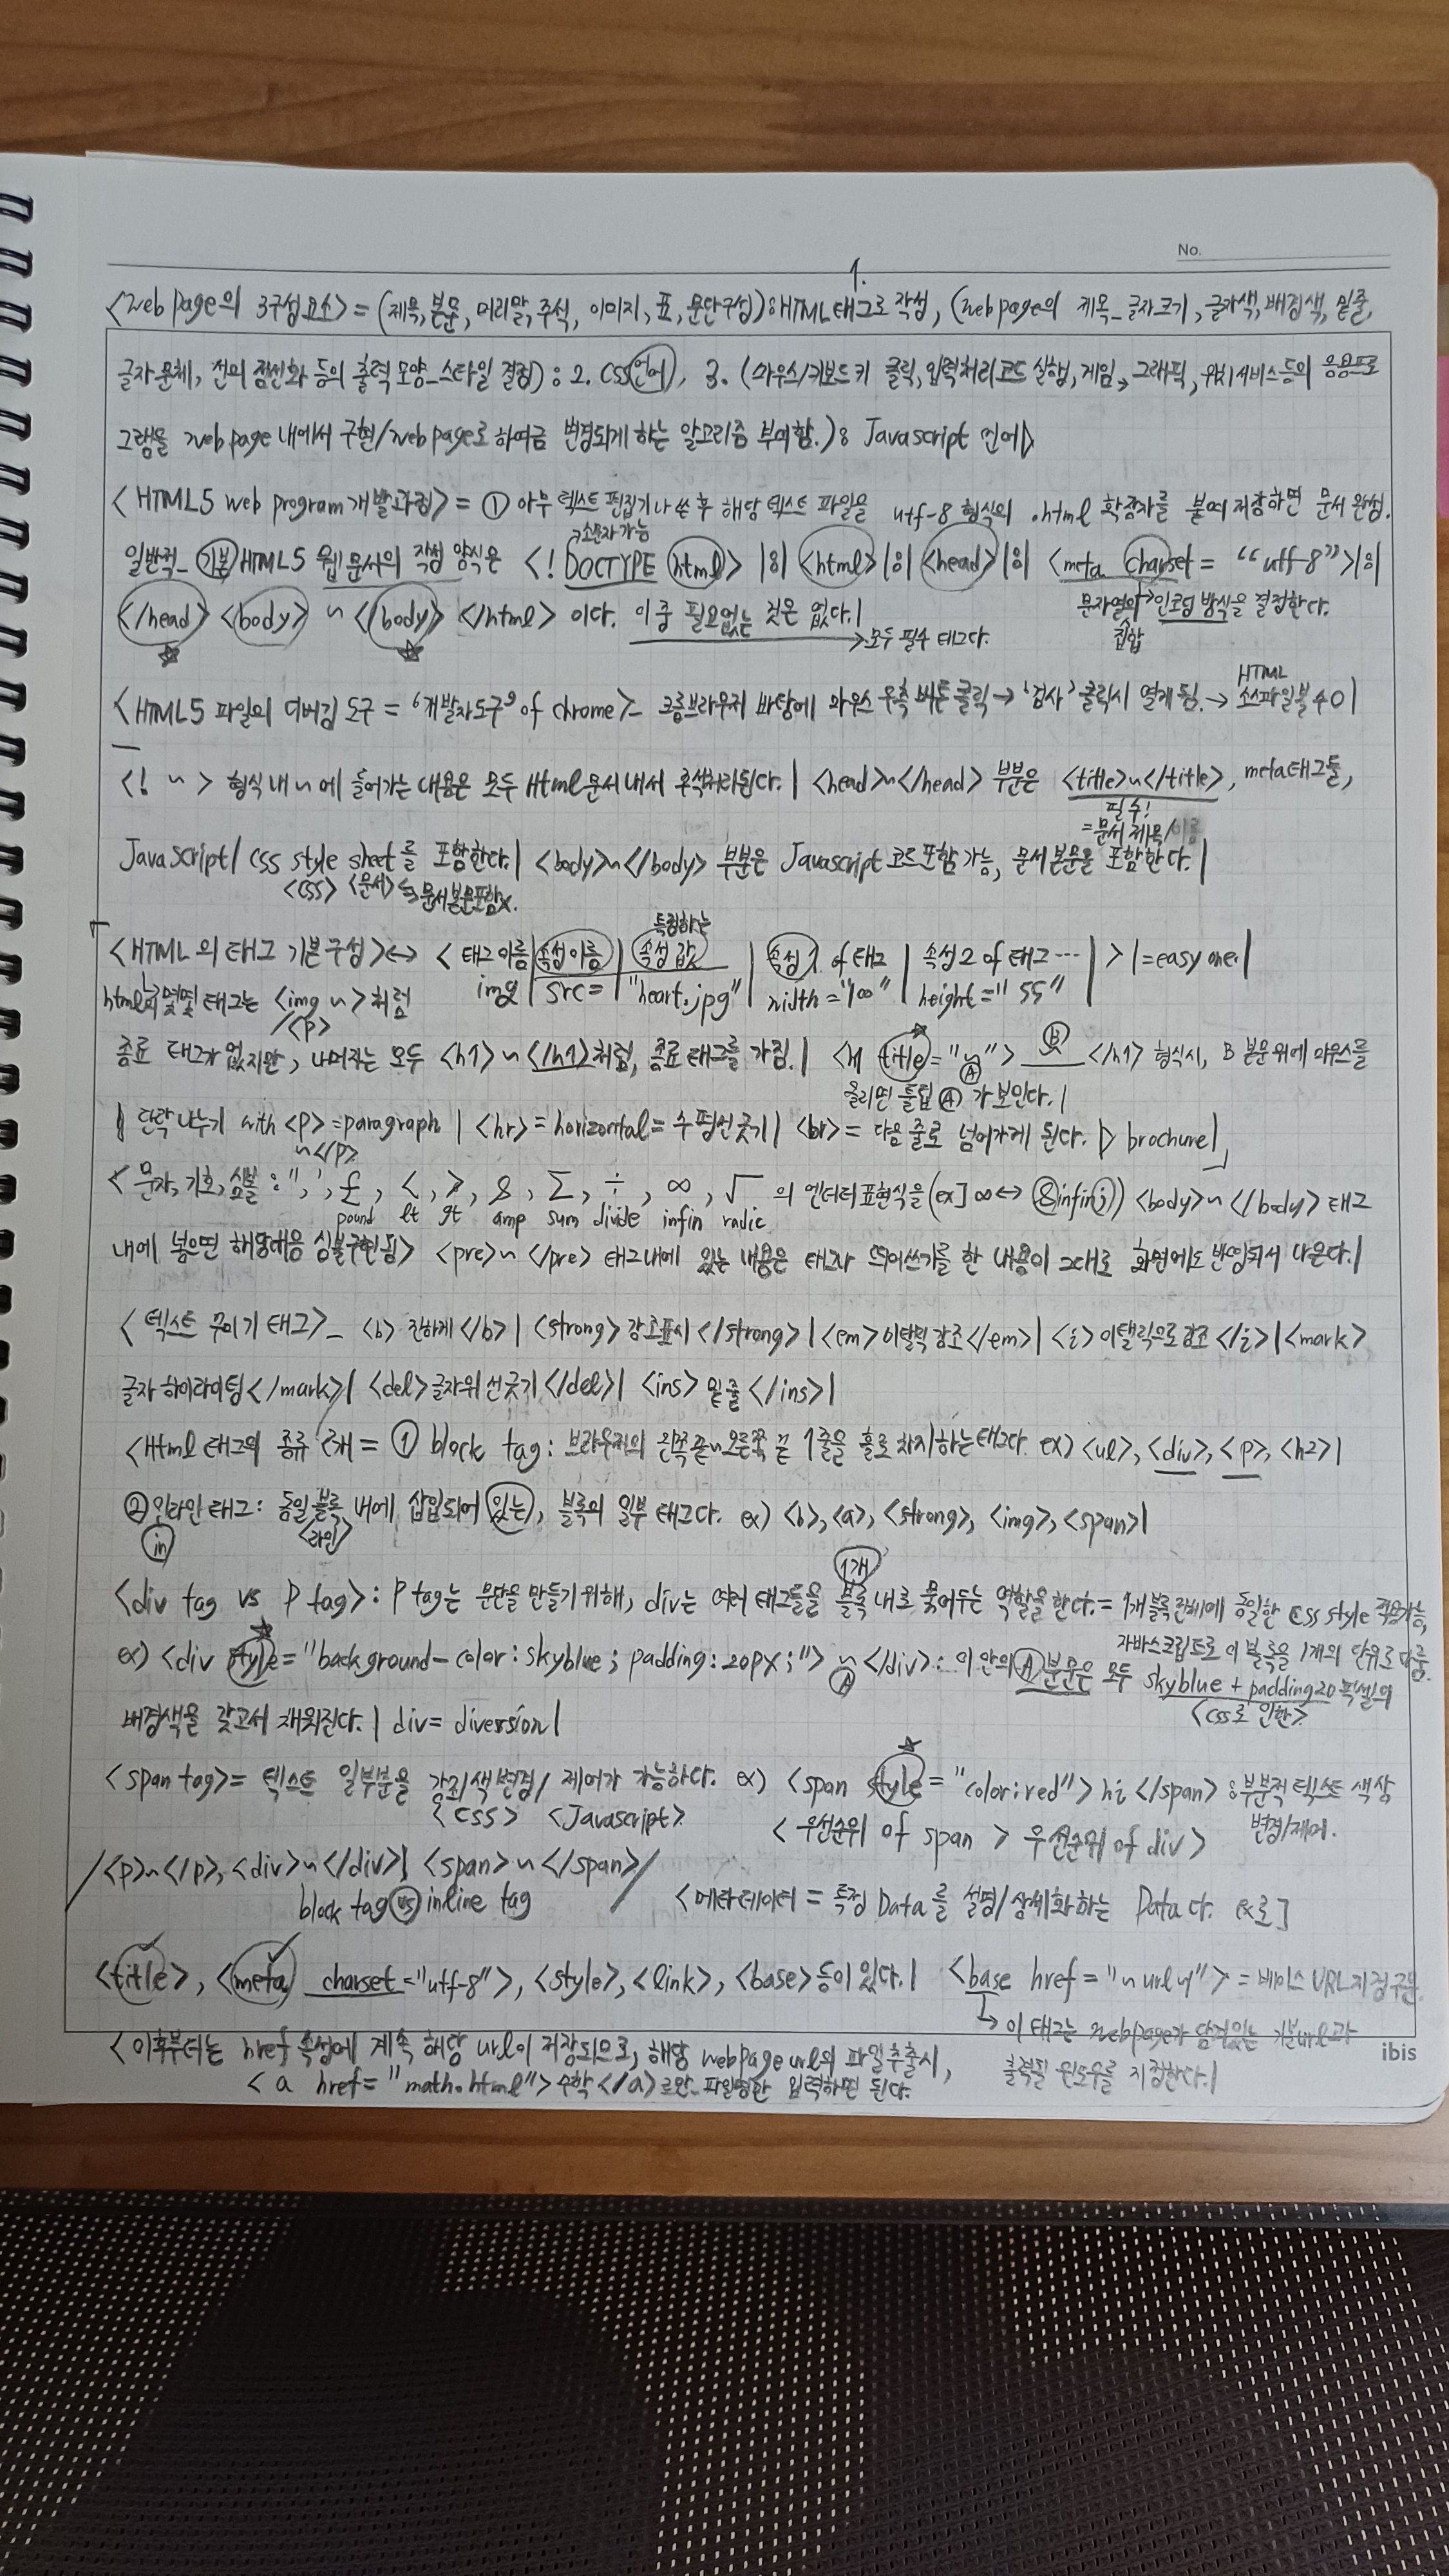 No.
<web page의 3구성요소> = (제목, 본문, 머리말, 주석, 이미지, 표, 문단구성) : 1. HTML 태그로 작성, (web page의 제목_글자크기, 글자색, 배경색, 밑줄,
글자 문체, 선의 점선화 등의 출력 모양_스타일 결정) : 2. CSS언어, 3. (마우스/키보드 키 클릭, 입력처리 코드 실행, 게임, 그래픽, 위치서비스 등의 응용프로
그램을 web page 내에서 구현/web page로 하여금 변경되게 하는 알고리즘 부여함.) : Javascript 언어▷
<HTML5 web program 개발과정> = ① 아무 텍스트 편집기나 쓴 후 해당 텍스트 파일을 utf-8 형식의 .html 확장자를 붙여 저장하면 문서 완성.
→소문자 가능
일반적_기본 HTML5 웹 문서의 작성 양식은 <! DOCTYPE html> |:| <html> |:| <head> |:| <meta charset = "utf-8"> |:|
</head> <body> ~ </body> </html> 이다. 이 중 필요없는 것은 없다.|
→모두 필수 태그다.
문자열의→인코딩 방식을 결정한다.
집합
HTML
<HTML5 파일의 디버깅 도구 = '개발자도구' of chrome>_ 크롬브라우저 바탕에 마우스 우측 버튼 클릭→'검사' 클릭시 열게 됨.→ 소스파일볼 수 0|
<! ~ > 형식 내 ~에 들어가는 내용은 모두 Html 문서 내서 주석처리된다.| <head>~</head> 부분은 <title>~</title>, meta태그들,
필수!
=문서 제목/이름
Javascript/ CSS style sheet를 포함한다.| <body>~</body> 부분은 Javascript 코드 포함 가능, 문서본문을 포함한다.|
<CSS> <문서> 문서본문포함x.
특정하는
<HTML의 태그 기본구성>↔ < 태그이름 | 속성이름 | 속성 값 | 속성1 of 태그 | 속성2 of 태그 … | > |=easy one.|
img | src= | "heart.jpg" | width="100" | height="55"
html의 몇몇 태그는 <img ~> 처럼
/<p>
종료 태그가 없지만, 나머지는 모두 <h1>~</h1>처럼, 종료 태그를 가짐.| <h1 title="~"> Ⓑ </h1> 형식시, B 본문위에 마우스를
Ⓐ
올리면 툴팁 Ⓐ가 보인다.|
|| 단락 나누기 with <p>=paragraph | <hr>=horizontal=수평선 긋기| = 다음 줄로 넘어가게 된다. ▷ brochure|
~</p>
< 문자, 기호, 심볼 : ", ', £, <, >, &, Σ, ÷, ∞, √ 의 엔터티 표현식을 (ex] ∞↔ &infin;)) <body>~</body> 태그
pound lt gt amp sum divide infin radic
내에 넣으면 해당대응 심볼구현됨> <pre>~</pre> 태그내에 있는 내용은 태그나 띄어쓰기를 한 내용이 그대로 화면에도 반영되서 나온다.|
< 텍스트 꾸미기 태그>_ <b> 진하게</b> | <strong> 강조표시</strong> | <em>이탤릭 강조</em> | <i>이탤릭으로 강조 </i> | <mark>
글자 하이라이팅</mark>| <del>글자위 선긋기</del>| <ins> 밑줄</ins>|
<Html 태그의 종류 2개 = ① block tag : 브라우저의 왼쪽 끝~오른쪽 끝 1줄을 홀로 차지하는 태그다. ex) <ul>, <div>, <p>, <h2>|
② 인라인 태그 : 동일 블록 내에 삽입되어 있는, 블록의 일부 태그다. ex) <b>, <a>, <strong>, <img>, <span>|
in <라인>
1개
<div tag vs P tag> : P tag는 문단을 만들기 위해, div는 여러 태그들을 블록 내로 묶어두는 역할을 한다.= 1개 블록 전체에 동일한 CSS style 적용가능,
자바스크립트로 이 블록을 1개의 단위로 다룸.
ex) <div style="background-color : skyblue; padding : 20px;"> ~ </div> : 이 안의 Ⓐ 본문은 모두 skyblue + padding20 픽셀의
Ⓐ
<CSS로 인한>
배경색을 갖고서 채워진다.| div= diversion|
<span tag>= 텍스트 일부분을 강조/색변경/ 제어가 가능하다. ex) <span style="color:red"> hi </span> : 부분적 텍스트 색상
<CSS> <Javascript> 변경/제어.
< 우선순위 of span > 우선순위 of div>
/<p>~</p>, <div>~</div>| <span>~</span>/
block tag vs inline tag
<메타데이터 = 특정 Data를 설명/상세화하는 Data다. ex로]
<title>, <meta charset="utf-8">, <style>, <link>, <base>등이 있다.| <base href="~url~"> = 베이스 URL지정구문.
→ 이 태그는 webpage가 담겨있는 기본url과
<이후부터는 href 속성에 계속 해당 url이 저장되므로, 해당 webpage url의 파일추출시, 출력될 윈도우를 지정한다.|
<a href="math.html">수학</a>로만_파일명만 입력하면 된다.
ibis